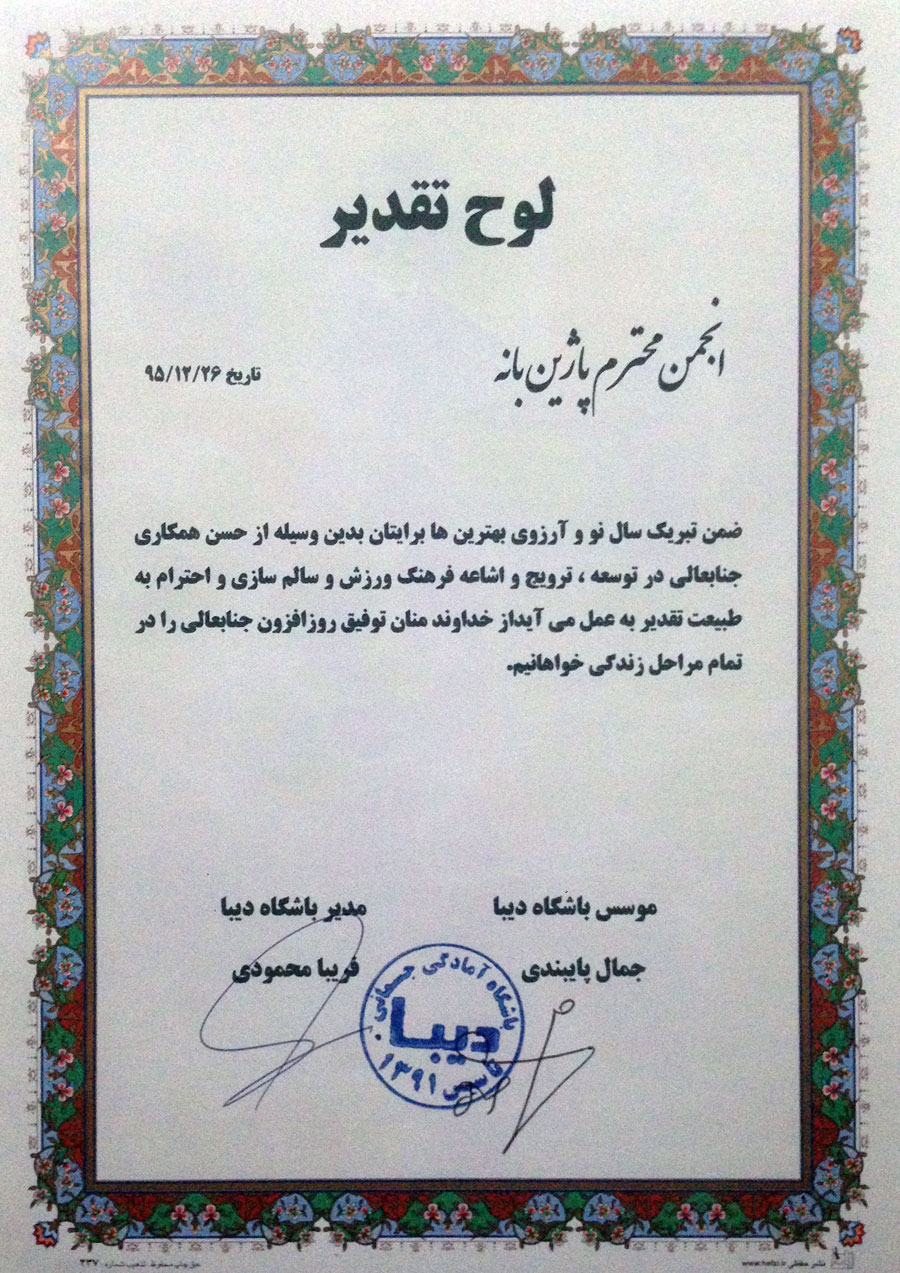 لوح تقدیر
انجمن محترم پاژین بانه
تاریخ ۹۵/۱۲/۲۶
ضمن تبریک سال نو و آرزوی بهترین ها برایتان بدین وسیله از حسن همکاری
جنابعالی در توسعه ، ترویج و اشاعه فرهنگ ورزش و سالم سازی و احترام به
طبیعت تقدیر به عمل می آیداز خداوند منان توفیق روزافزون جنابعالی را در
تمام مراحل زندگی خواهانیم.
موسس باشگاه دیبا
مدیر باشگاه دیبا
جمال پایبندی
فریبا محمودی
باشگاه آمادگی جسمانی
دیبا
تاسیس ۱۳۹۱
نشر حفظی www.hefzi.ir
حق چاپ محفوظ تذهیب شماره: ۲۳۷